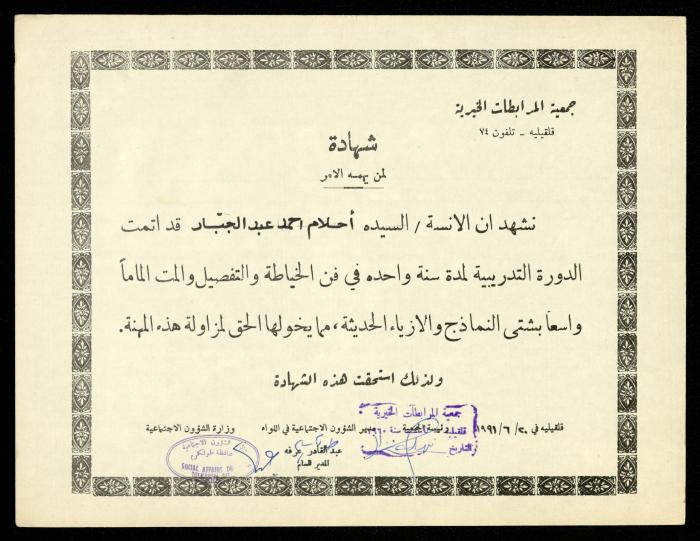 جمعية المرابطات الخيرية
قلقيليه - تلفون ٧٤
شهادة
لمن يهمه الامر
نشهد ان الانسة / السيده أحلام احمد عبد الجبّار قد اتمت
الدورة التدريبية لمدة سنة واحده في فن الخياطة والتفصيل والمت الماماً
واسعاً بشتى النماذج والازياء الحديثة، مما يخولها الحق لمزاولة هذه المهنة.
ولذلك استحقت هذه الشهادة
قلقيليه في ٢٠ / ٦ / ١٩٩١ رئيسة الجمعية مدير الشؤون الاجتماعية في اللواء وزارة الشؤون الاجتماعية
جمعية المرابطات الخيرية
قلقيلية
التاريخ
عبد القادر عرفه
الشؤون الاجتماعية
محافظة طولكرم
SOCIAL AFFAIRS DE